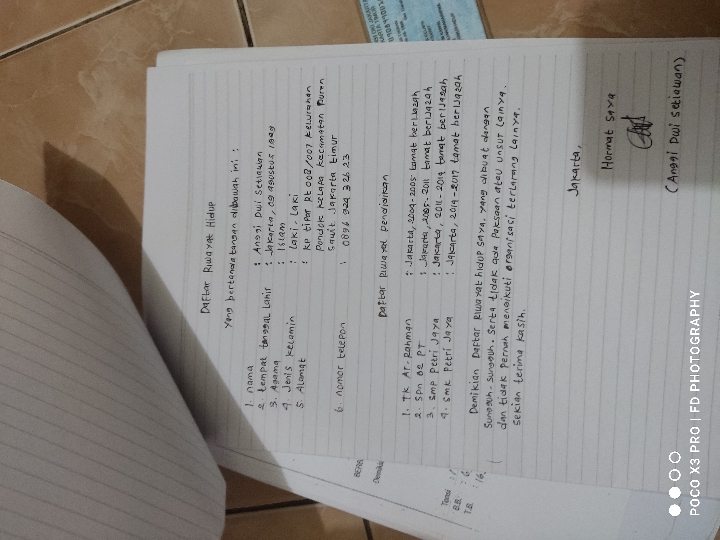 Daftar Riwayat Hidup
Yang bertanda tangan dibawah ini :
1. nama : Anggi Dwi Setiawan
2. tempat tanggal Lahir : Jakarta, 09 Agustus 1999
3. Agama : Islam
4. Jenis kelamin : Laki-Laki
5. Alamat : KP tipar Rt 008/007 kelurahan
Pondok kelapa kecamatan Duren
Sawit Jakarta timur
6. nomor telepon : 0896 924 3 26 23
Daftar Riwayat Pendidikan
1. TK Ar-Rahman : Jakarta, 2004-2005 tamat berijazah
2. SDN 02 PT : Jakarta, 2005-2011 tamat berijazah
3. SMP Petri Jaya : Jakarta, 2011-2014 tamat berijazah
4. SMK Petri Jaya : Jakarta, 2014-2017 tamat berijazah
Demikian Daftar Riwayat hidup saya. yang dibuat dengan
Sungguh-sungguh. Serta tidak ada Paksaan atau unsur Lainya.
dan tidak Pernah mengikuti organisasi terlarang lainya.
sekian terima kasih.
Jakarta,
Hormat saya
(Anggi Dwi Setiawan)
T.B.
B.B.
POCO X3 PRO | FD PHOTOGRAPHY